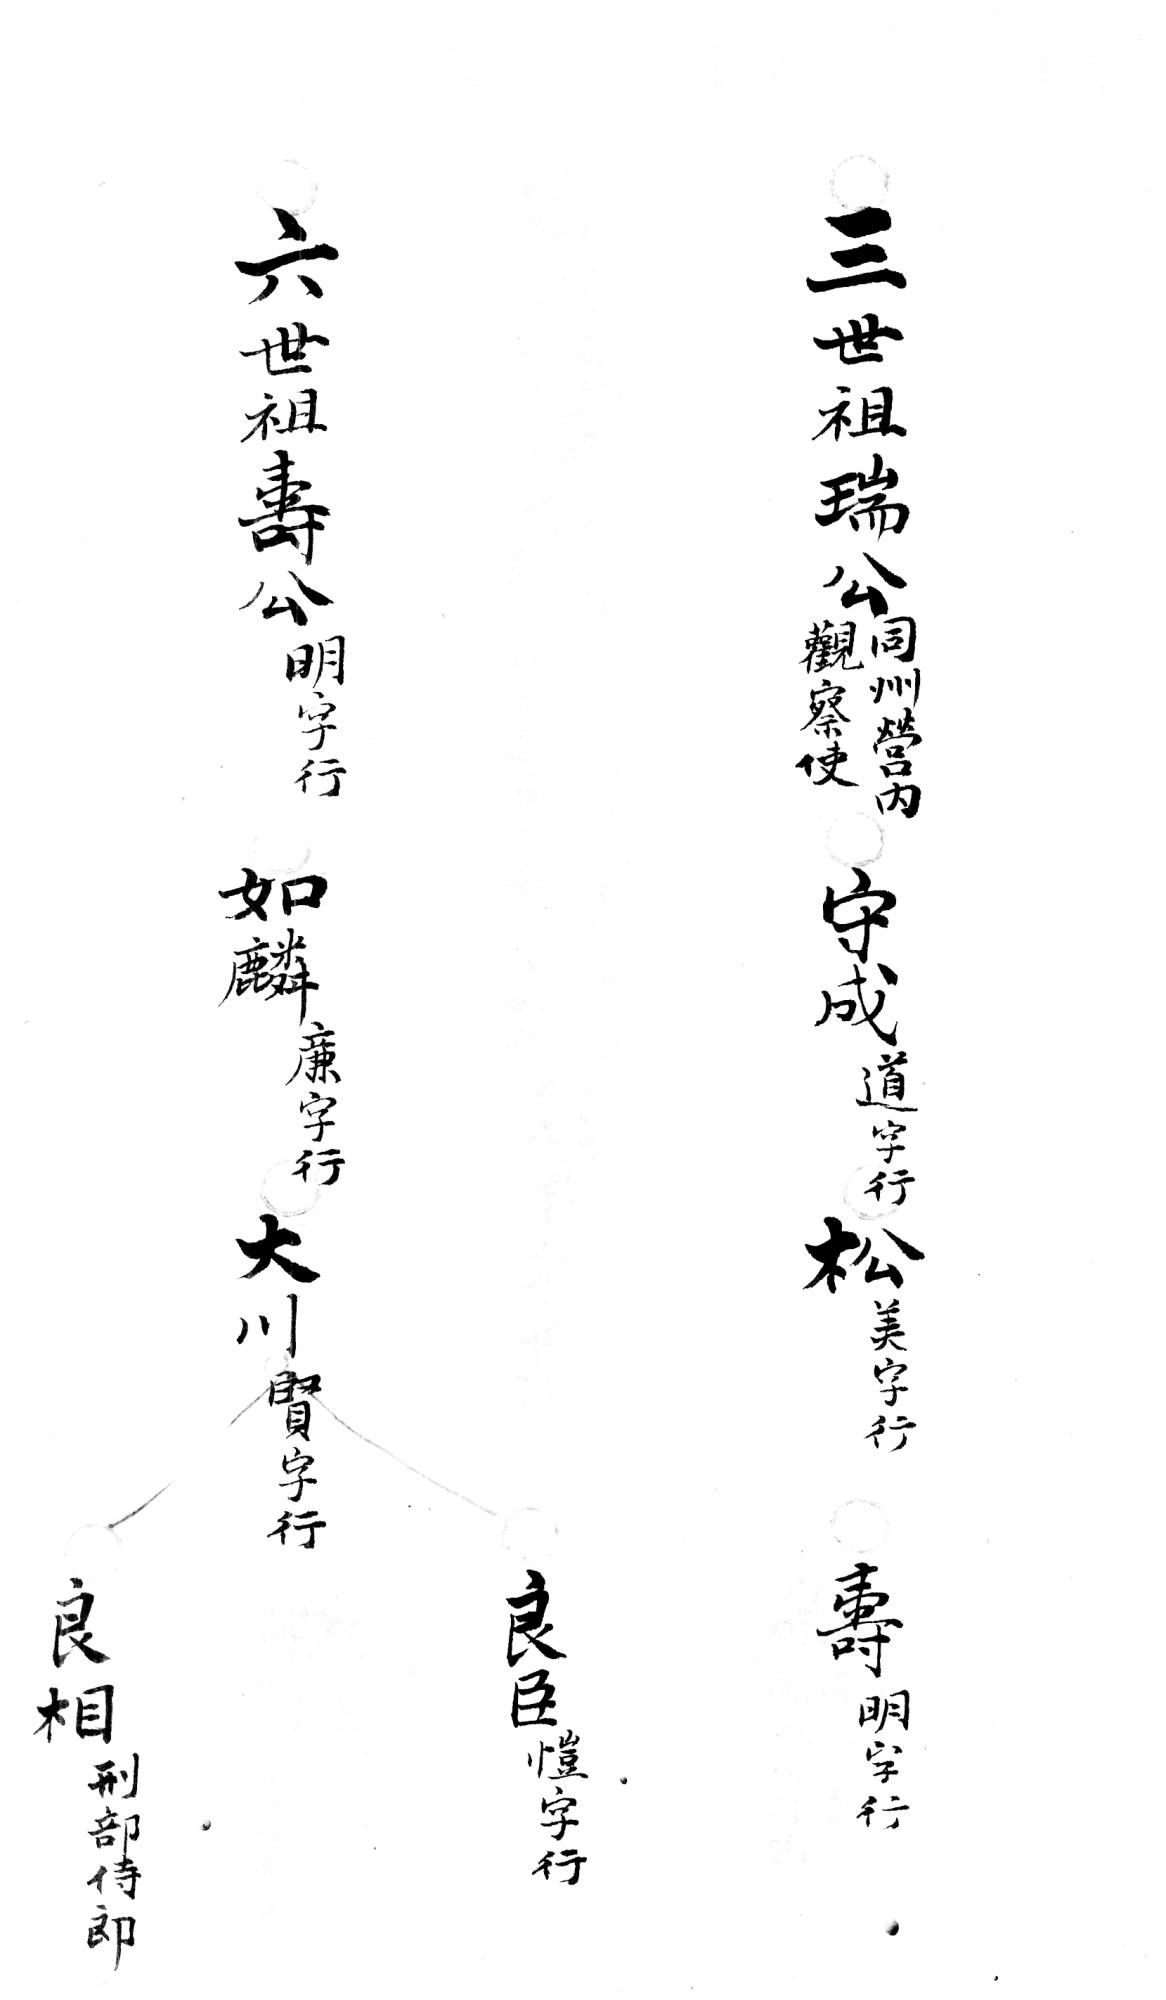 三世祖瑞公
同州營內
觀察使
守成
道字行
松
美字行
壽
明字行
六世祖壽公
明字行
如麟
廉字行
大川
賢字行
良臣
愷字行
良相
刑部侍郎